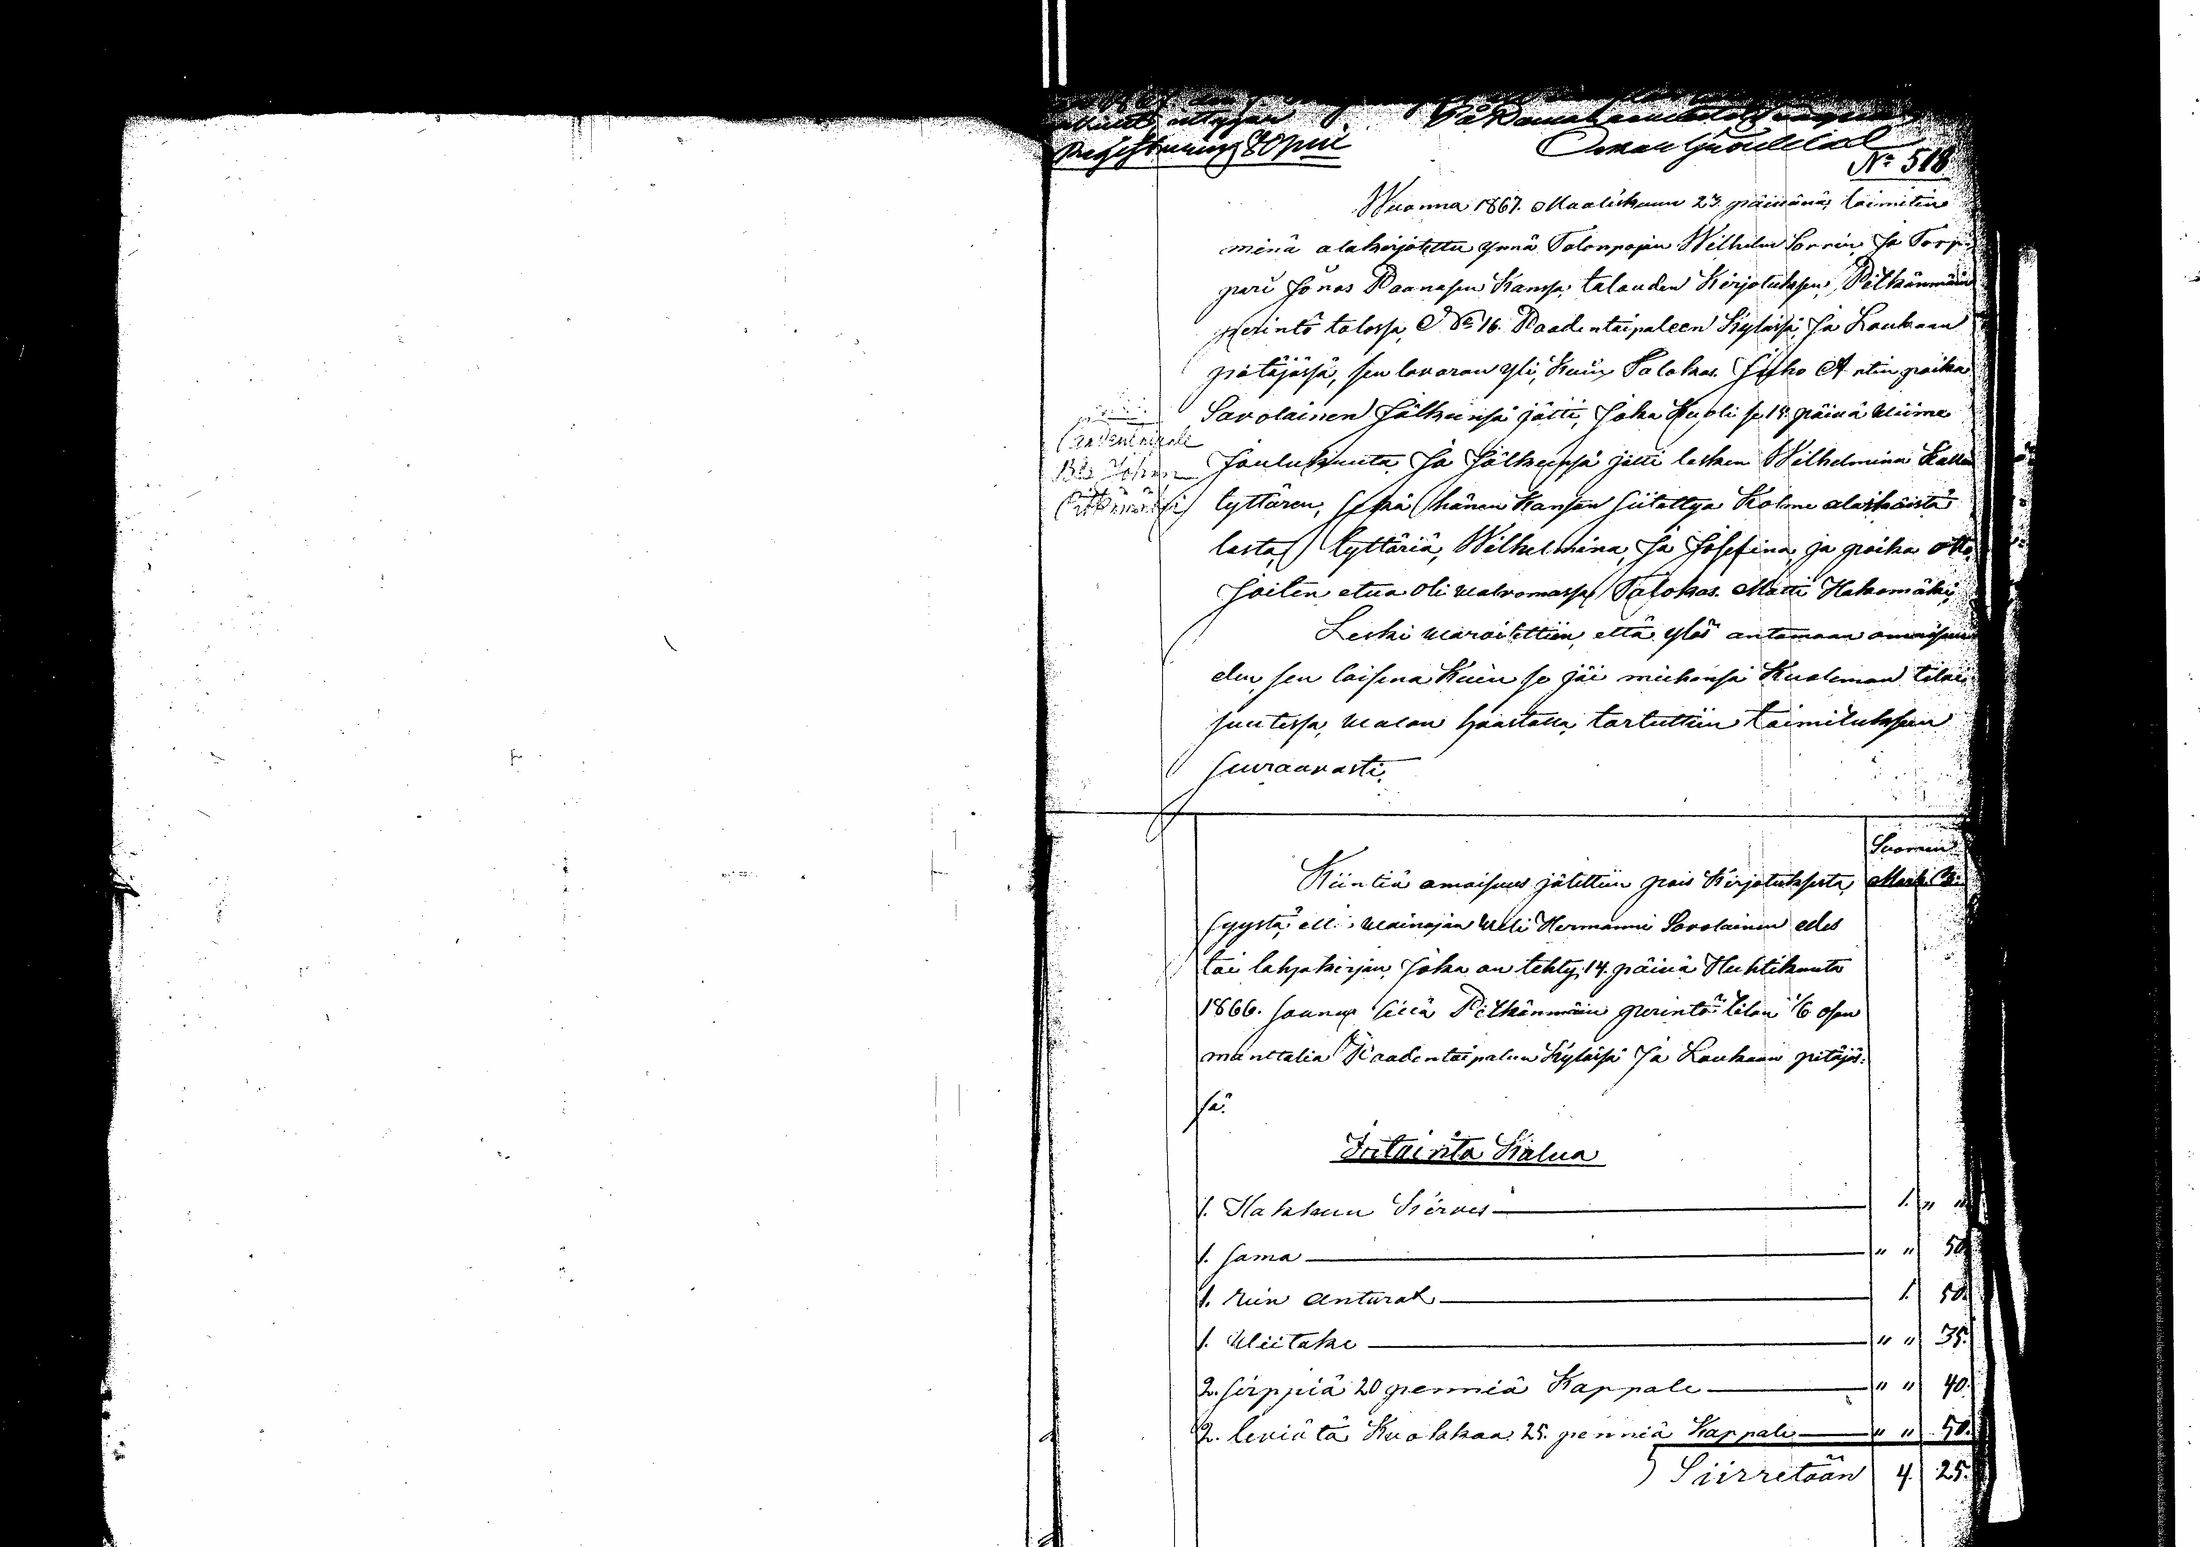 Registrering 80 pni
№ 518
Wuonna 1867. Maaliskuun 23. päivänä, toimitin
minä alakirjotettu ynnä Talonpojan Wilhelm Sorrin, Ja Torp-
pari Jonas Paanasen Kanssa, talouden Kirjotuksen, Pitkänmäin
perintö talossa, № 16. Paadentaipaleen Kylässä Ja Laukaan
pitäjässä, sen tavaran yli, Kuin Talokas. Juho Antin poika
Savolainen Jälkeensä jätti, Joka Kuoli se 15. päivä wiime
Paadentaipale
Joulukuuta, Ja Jälkeensä jätti lesken Wilhelmina Kallen
Johan
Pitkämäki
tyttären, sekä hänen Kansan siitettyä Kolme alaikäistä
lasta, tyttäriä, Wilhelmina, Ja Josefina, ja poika Otto,
Joiten etua oli walvomassa Talokas. Matti Hakomäki,
Leski waroitettiin, että ylös antamaan omaisuu-
den, sen laisena Kuin se jäi miehensä Kuoleman tilai-
suutessa, walan haastolla, tartuttiin toimituksseen
seuraavasti,
Suomen
Kiintiä omaisuus jätettiin pois Kirjotuksesta, Mark. P:
syystä, ett wainajan weli Hermanni Savolainen edes
toi lahjakirjan, Joka on tehty, 14. päivä Huhtikuuta
1866. saanu siitä Pitkänmäin perintö tilan 1/6 osan
manttalia Paadentaipaleen Kylässä Ja Laukaan pitäjäs-
sä.
Irtainta Kalua
1. Hakkuu Kirves 1. " "
1. sama " " 50.
1. reen anturat 1. 50.
1. Wiitake " " 35.
2. sirppiä 20 penniä Kappale " " 40.
2. leviätä Kuokkaa. 25. penniä Kappale " " 50.
Siirretään 4. 25.